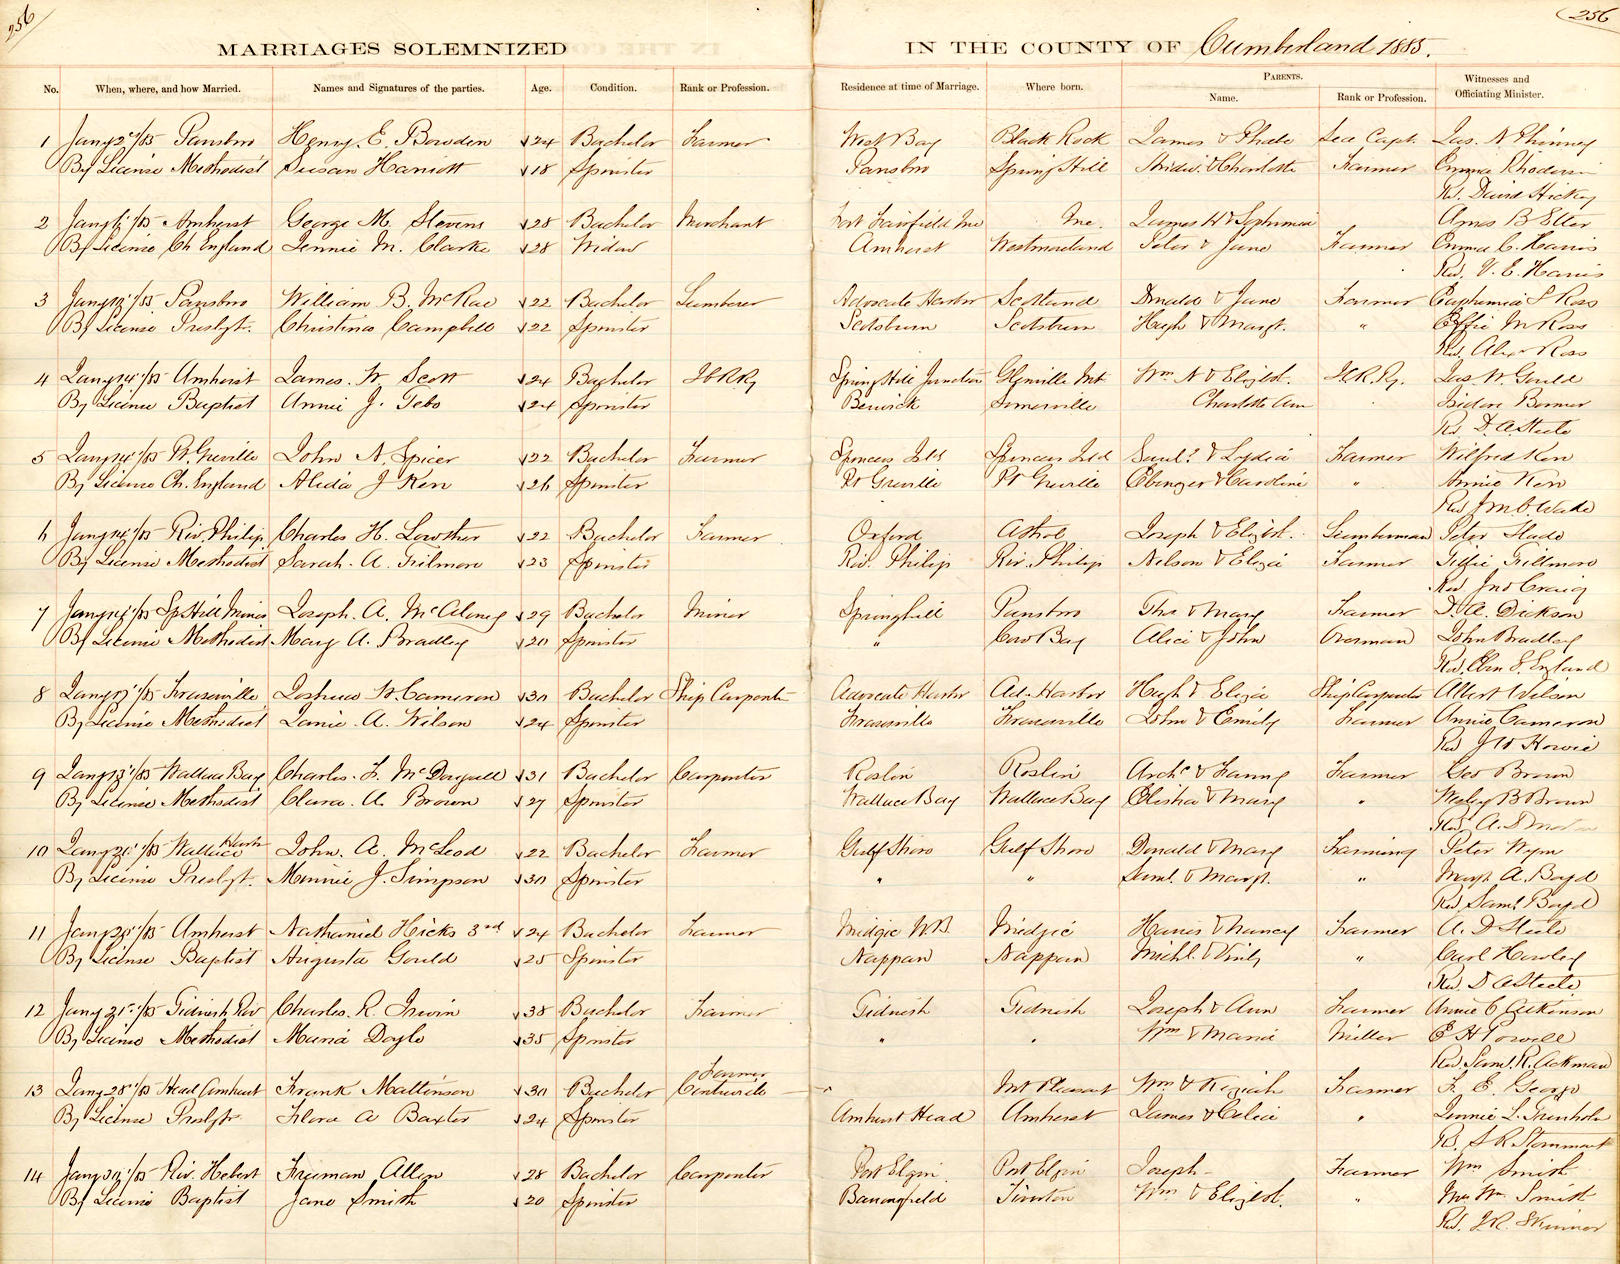 256
256
MARRIAGES SOLEMNIZED IN THE COUNTY OF Cumberland 1885.
No. When, where, and how Married. Names and Signatures of the parties. Age. Condition. Rank or Profession. Residence at time of Marriage. Where born. PARENTS. Name. Rank or Profession. Witnesses and Officiating Minister.
1 Jany 2nd/85 Parsboro Henry. E. Bowden 24 Bachelor Farmer West Bay Black Rock James & Phebe Sea Capt. Jas. N Phinney
By License Methodist Susan Harriott 18 Spinster Parsboro Spring Hill & Charlotte Farmer Emma
Rev. David Hickey
2 Jany 6/85 Amherst George M. Stevens 28 Bachelor Merchant Fort Fairfield Me Me. James H & Sophronia Amos B Etter
By License Ch England Jennie M. Clarke 28 Widow Amherst Westmoreland Peter & Jane Farmer Emma C. Harris
Rev. V. E. Harris
3 Jany /85 Parsboro William B. McRae 22 Bachelor Lumberer Advocate Harbor Scotland Donald & Jane Farmer Euphemia S Ross
By License Presbyt. Christina Campbell 22 Spinster Scotsburn Scotsburn Hugh & Margt. " Effie M Ross
Rev. Alex Ross
4 Jany 14/85 Amherst James. W Scott 24 Bachelor I C R Ry Spring Hill Junction Glenville Wm N & Elizbt. I C. R. Ry. Jas. W. Gould
By License Baptist Annie J. Tebo 24 Spinster Berwick Somerville Charlotte Ann Isidore
Rev D. A. Steele
5 Jany 14/85 Pt. Greville John N. Spicer 22 Bachelor Farmer Spencers Isld Spencers Isld Saml. & Lydia Farmer Wilfred Kerr
By License Ch. England Alida J Kerr 26 Spinster Pt Greville Pt Greville Ebenezer & Caroline " Annie Kerr
Rev J M C Wade
6 Jany 14/85 Riv. Philip Charles H. Lowther 22 Bachelor Farmer Oxford Joseph & Elizbt. Lumberman Peter Slade
By License Methodist Sarah. A. Filmore 23 Spinster Riv. Philip Riv. Philip Nelson & Eliza Farmer Fillmore
Rev Jno Craig
7 Jany 14/85 Sp Hill Mines Joseph. A. McAloney 29 Bachelor Miner Springhill Parsboro Thos & Mary Farmer A. Dickson
By License Methodist Mary A. Bradley 20 Spinster " Cow Bay Alice & John Overman John Bradley
Rev. Elam England
8 Jany 17/85 Fraserville Joshua W. Cameron 30 Bachelor Ship Carpenter Advocate Harbor Ad. Harbor Hugh & Eliza Ship Carpenter Albert Wilson
By License Methodist Janie A. Wilson 24 Spinster Fraserville Fraserville John & Emily Farmer Annie Cameron
Rev J W Howie
9 Jany 13/85 Wallace Bay Charles. F. McDougall 31 Bachelor Carpenter Roslin Roslin Archd & Fanny Farmer Geo Brown
By License Methodist Clara. A. Brown 27 Spinster Wallace Bay Wallace Bay Elisha & Mary " Wesley B Brown
Rev A. D
10 Jany 20/85 Wallace Harbr John. A. McLeod 22 Bachelor Farmer Gulf Shore Gulf Shore Donald & Mary Farming Peter
By License Presbyt. Minnie J. Simpson 30 Spinster " " Saml. & Margt. " Margt. A. Boyd
Rev Saml Boyd
11 Jany 20/85 Amherst Nathaniel Hicks 3rd 24 Bachelor Farmer Midgic N B. Midgic & Nancy Farmer A. D Steele
By License Baptist Augusta Gould 25 Spinster Nappan Nappan Michl. & " Carl
Rev. D A Steele
12 Jany 21st/85 Tidnish Riv Charles. R. Irwin 38 Bachelor Farmer Tidnish Tidnish Joseph & Ann Farmer Annie C Atkinson
By License Methodist Maria Doyle 35 Spinster " " Wm & Maria Miller E H Powell
Rev. Saml. R. Ackman
13 Jany 28/85 Head Amherst Frank Mattinson 30 Bachelor Farmer Centreville Mt Pleasant Wm & Keziah Farmer F. E. George
By License Presbyt Flora A Baxter 24 Spinster Amherst Head Amherst James & Celia " Jennie L. Trenholm
Rev. S R.
14 Jany /85 Riv. Hebert Freeman Allen 28 Bachelor Carpenter Port Elgin Port Elgin Joseph - Farmer Wm Smith
By License Baptist Jane Smith 20 Spinster Tiverton Wm & Elizbt. " Mrs Wm. Smith
Rev. J. R. Skinner